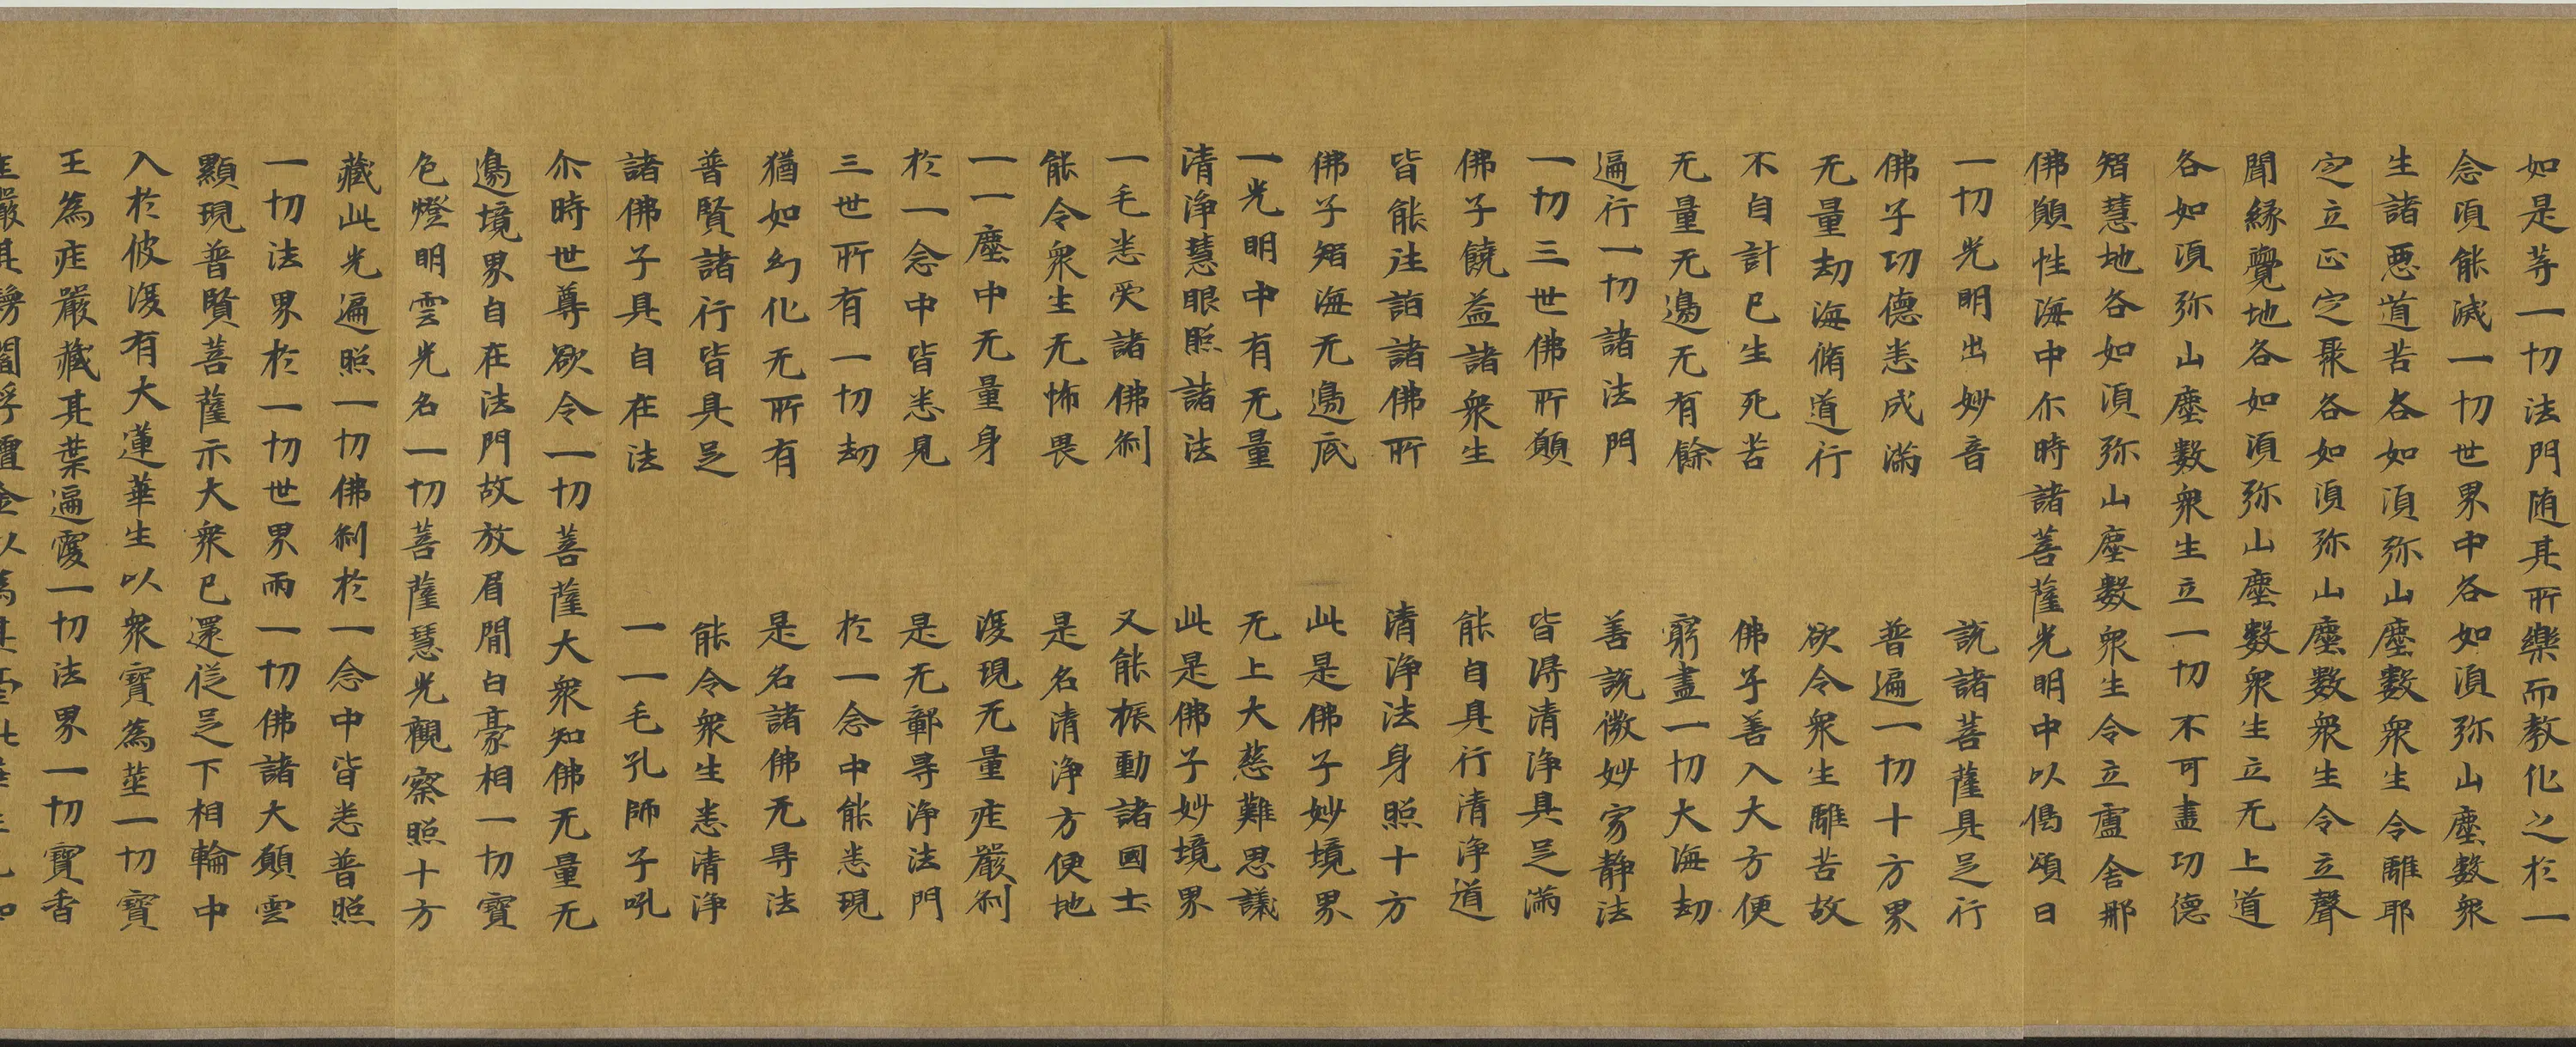 如是等一切法門随其所樂而教化之於一
念湏能滅一切世界中各如湏弥山塵數衆
生諸惡道苦各如湏弥山塵數衆生令離耶
定立正定聚各如湏弥山塵數衆生令立聲
聞縁覺地各如湏弥山塵數衆生立无上道
各如湏弥山塵數衆生立一切不可盡功德
智慧地各如湏弥山塵數衆生令立盧舍那
佛願性海中尒時諸菩薩光明中以偈頌曰
一切光明出妙音　說諸菩薩具足行
佛子功德悉成滿　普遍一切十方界
无量劫海脩道行　欲令衆生離苦故
不自計已生死苦　佛子善入大方便
无量无邊无有餘　窮盡一切大海劫
遍行一切諸法門　善說微妙寂静法
一切三世佛所願　皆得清淨具足滿
佛子饒益諸衆生　能自具行清淨道
皆能往詣諸佛所　清淨法身照十方
佛子智海无邊底　此是佛子妙境界
一光明中有无量　无上大慈難思議
清淨慧眼照諸法　此是佛子妙境界
一毛悉受諸佛刹　又能振動諸國土
能令衆生无怖畏　是名清淨方便地
一一塵中无量身　復現无量莊嚴刹
於一念中皆悉見　是无鄣㝵淨法門
三世所有一切劫　於一念中能悉現
猶如幻化无所有　是名諸佛无㝵法
普賢諸行皆具足　能令衆生悉清淨
諸佛子具自在法　一一毛孔師子吼
尒時世尊欲令一切菩薩大衆知佛无量无
邊境界自在法門故放眉間白豪相一切寶
色燈明雲光名一切菩薩慧光觀察照十方
藏此光遍照一切佛刹於一念中皆悉普照
一切法界於一切世界雨一切佛諸大願雲
顯現普賢菩薩示大衆已還從足下相輪中
入於彼復有大蓮華生以衆寶為莖一切寶
王為莊嚴藏其葉遍覆一切法界一切寶香